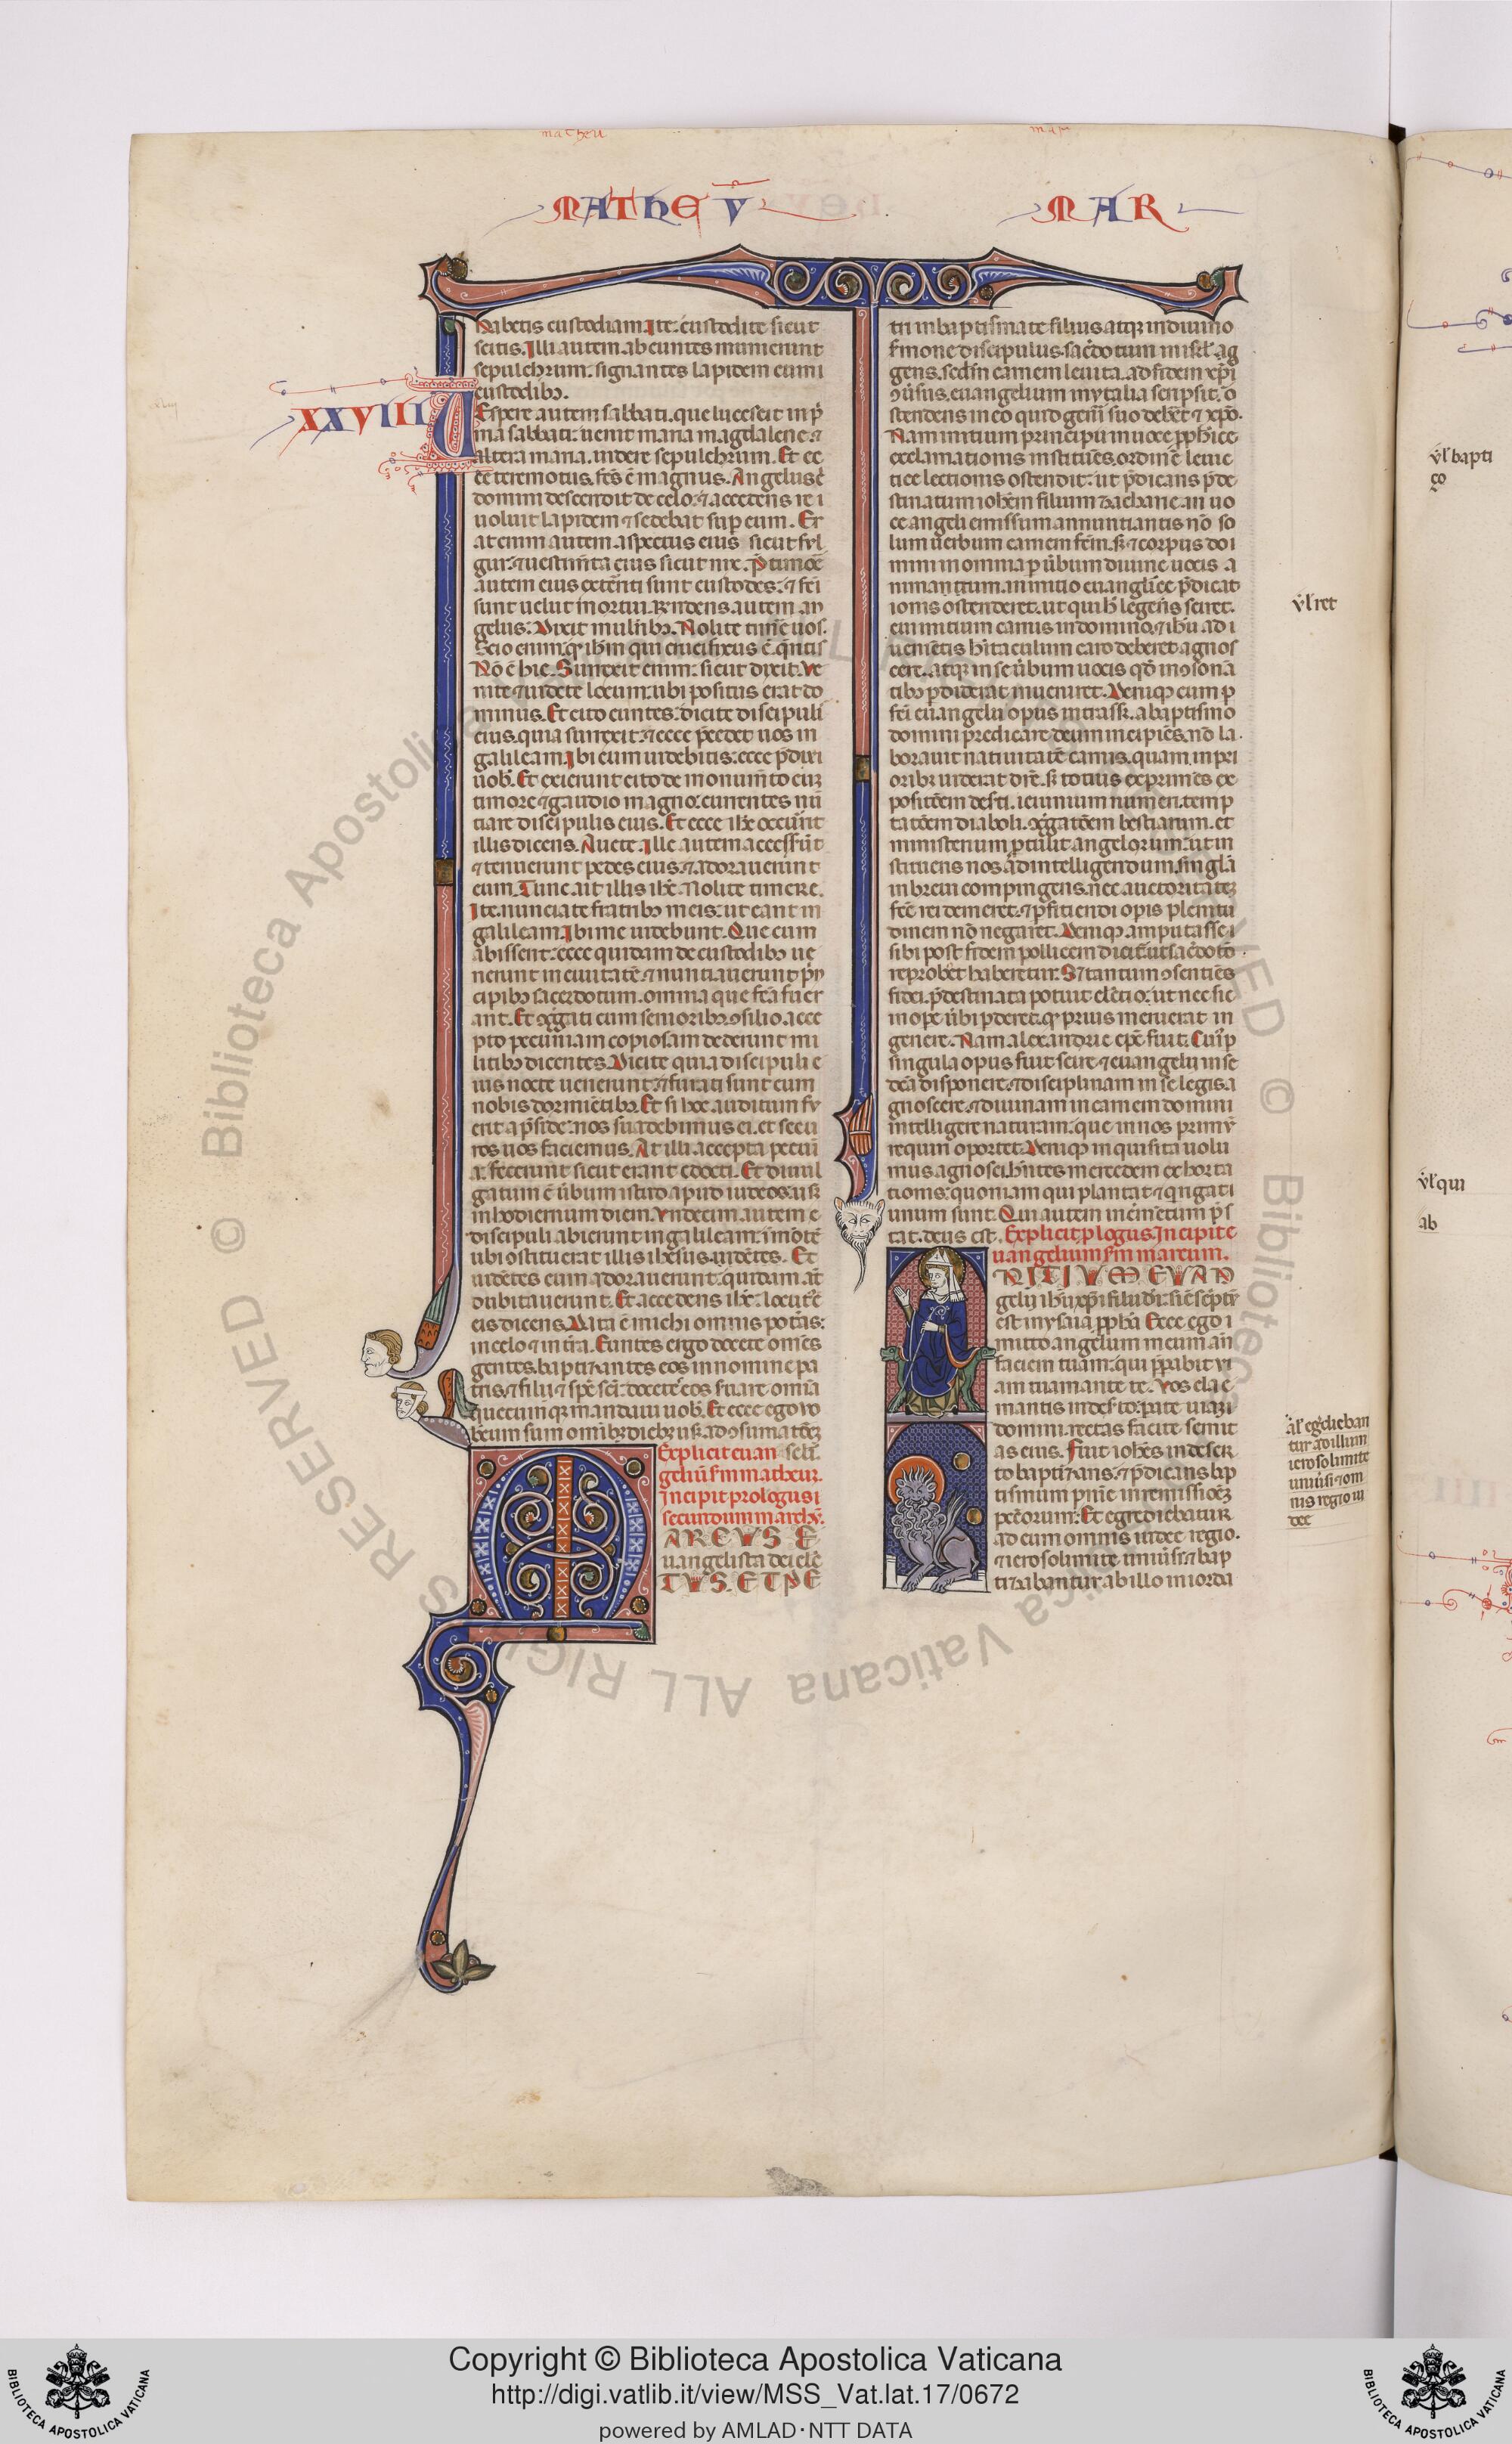 matheu
mar
MATHEV̄
MAR
habetis custodiam. Ite: custodite sicut
scitis. Illi autem abeuntes munierunt
sepulchrum: signantes lapidem cum
custodibꝫ.
XXVIII
Vespere autem sabbati. que lucescit in p̄
ma sabbati: uenit maria magdalene ⁊
altera maria. uidere sepulchrum. Et ec
ce teremotus. fc̄s ē magnus. Angelus ē
domini descendit de celo: ⁊ accedens re
uoluit lapidem ⁊ sedebat sup eum. Er
at enim autem aspectus eius sicut ful
gur: ⁊ uestim̄ta eius sicut nix. P̄ timoꝛē
autem eius exteriti sunt custodes: ⁊ fc̄i
sunt uelut mortui. Rn̄dens autem an
gelus: Dixit mulierib;. Nolite timēe uos.
Scio enim: qꝫ ihm̄ qui crucifixus ē. q̄ritis
Nō ē hic. Surrexit enim: sicut dixit. Ve
nite ⁊ uidete locum: ubi positus erat do
minus. Et cito euntes: dicite discipuli
eius. quia surrexit: ⁊ ecce p̄cedet uos in
galileam. Ibi eum uidebitis: ecce p̄dixi
uob̄. Et exierunt cito de monum̄to cuꝫ
timore ⁊ gaudio magno: currentes nū
tiare discipulis eius. Et ecce ihc̄ occurrit
illis dicens. Auete. Ille autem accesserūt
⁊ tenuerunt pedes eius. ⁊ adorauerunt
eum. Tunc ait illis ihc̄. Nolite timere.
Ite. nunciate fratribꝫ meis: ut eant in
galileam. Ibi me uidebunt. Que cum
abissent: ecce quidam de custodibꝫ ue
nerunt in ciuitatē. ⁊ nuntiauerunt p̄n
cipibꝫ sacerdotum. omnia que fc̄a fuer
ant. Et ꝯg̃gati cum senioribꝫ. ꝯsilio acce
pto pecuniam copiosam dederunt mi
litibꝫ dicentes. Dicite quia discipuli e
ius nocte uenerunt: ⁊ furati sunt eum
nobis dormiētibꝫ. Et si hoc auditum fu
erit a p̄side: nos suadebimus ei. et secu
ros uos faciemus. At illi accepta pecuni
a. fecerunt sicut erant edocti. Et diuul
gatum ē ūbum istud apud iudeos: usꝫ
in hodiernum diem. Vndecim autem
discipuli abierunt in galileam: ī mōtē
ubi ꝯstituerat illis ihesus. uidētes. Et
uidētes eum adorauerunt: quidam aū
dubitauerunt. Et accedens ihc̄: locut̄ ē
eis dicens. Data ē michi omnis potās:
in celo ⁊ in tr̄a. Euntes ergo docete omēs
gentes. baptizantes eos in nomine pa
tris. ⁊ filii ⁊ sp̄c sc̄i: docētes eos suare omīa
quecumqꝫ mandaui uob̄. Et ecce ego uo
bcum sum omībꝫ diebꝫ usꝫ ad ꝯsumatōeꝫ
Explicit euan seculi.
gelium scd̄m matheum.
Incipit prologus i
secundum marchū.
MARCVS E
uangelista dei elec
TVS. ET PE
tri in baptismate filius atqꝫ in diuino
sermone discipulus. sac̄dotum in isrl̄ ag
gens. sed̄m carnem leuita. ad fidem xp̄i
ꝯūsus. euangelium in ytalia scripsit. o
stendens in eo quid gen̄i suo debēt ⁊ xpō.
Nam initium principii in uoce pp̄hetice
exclamationis instituēs. ordinē leuic
tice lectionis ostendit: ut p̄dicans p̄de
stinatum ioh̄em filium zacharie. in uo
ce angeli emissum annuntiantis nō so
lum ūerbum carnem fc̄m. sꝫ ⁊ corpus do
mini in omnia p ūbum diuine uocis a
nimantium. in initio euanglīce p̄dicat
ionis ostenderet. ut qui h̄ legens sciret.
cui initium carnis in domino. ⁊ ihū ad
uenietis h̄itaculum caro deberet agnos
cere. atqꝫ in se ūbum uocis qd̄ in ꝯsonā
tibꝫ pdiderat inueniret. Deniqꝫ cum p
fecti euangelii opus intrass̄. a baptismo
domini predicare deum incipiēs. nō la
borauit natiuitatē carnis. quam in pri
oribꝫ uiderat dic̄e. sꝫ totius exprimēs ex
positōem deserti. ieiunium numeri. temp
tatōem diaboli. ꝯg̃gatōem bestiarum. et
ministerium ptulit angelorum: ut in
stituens nos ad intelligendum. singla
in breui compingens. nec auctoritateꝫ
fc̄e rei demeret. ⁊ pficiendi opis plenitu
dinem nō negaret. Deniqꝫ amputasse
sibi post fidem pollicem dicit: ut sac̄dotio
reprobꝰ haberetur. Sꝫ tantum ꝯsentiēs
fidei. p̄destinata potuit elēctio: ut nec sic
in ope ūbi pderet. qꝫ prius meruerat in
genere. Nam alexandrie ep̄c fuit. Cuiꝰ p
singula opus fuit scire. ⁊ euangelii in se
dc̄a disponere. ⁊ disciplinam in se legis a
gnoscere. ⁊ diuinam in carnem domini
intelligere naturam: que in nos primū
requiri oportet. Deniqꝫ inquisita uolu
mus agnosci. h̄ntes mercedem exhorta
tionis: quoniam qui plantat ⁊ q̄ rigat
unum sunt. Qui autem incremetum p̄s
tat. deus est. Explicit plogus. Incipit e
uangelium scd̄m marcum.
INITIVM EVAN
gelii ihū xp̄i filii dei: sic̄ sc̄ptū
est in ysaia ppha. Ecce ego
mitto angelum meum an̄
faciem tuam: qui pp̄arabit ui
am tuam ante te. Vox cla
mantis in deserto: parate uiam
domini. rectas facite semit
as eius. Fuit ioh̄es in deser
to baptizans. ⁊ p̄dicans bap
tismum pnīe in remissioēꝫ
pcc̄torum. Et egrediebatur
ad eum omnis iudee regio.
⁊ ierosolimite uniūsi. ⁊ bap
tizabantur ab illo in iorda
ūl̄ ret
al̄ egrediebantur ad illum
ierosolimite
uniūsi ⁊ om
nis regio iu
dee
ūl̄ bapti
ūl̄ qui
ab
Copyright © Biblioteca Apostolica Vaticana
http://digi.vatlib.it/view/MSS_Vat.lat.17/0672
powered by AMLAD·NTT DATA
BIBLIOTECA APOSTOLICA VATICANA
BIBLIOTECA APOSTOLICA VATICANA
© Biblioteca Apostolica Vaticana ALL RIGHTS RESERVED